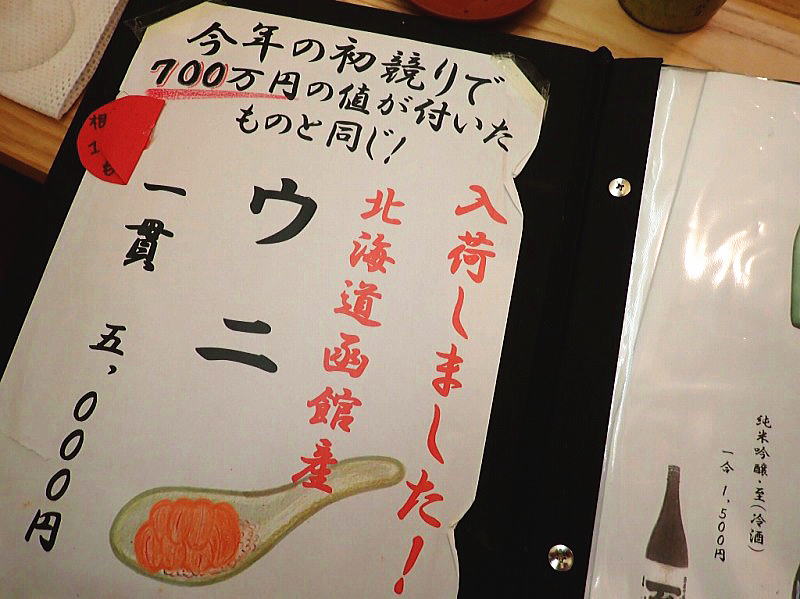 今年の初競りで
700万円の値が付いた
ものと同じ!
入荷しました!
北海道函館産
ウニ
一貫 五,000円
純米吟醸・至(冷酒)
一合 1,500円